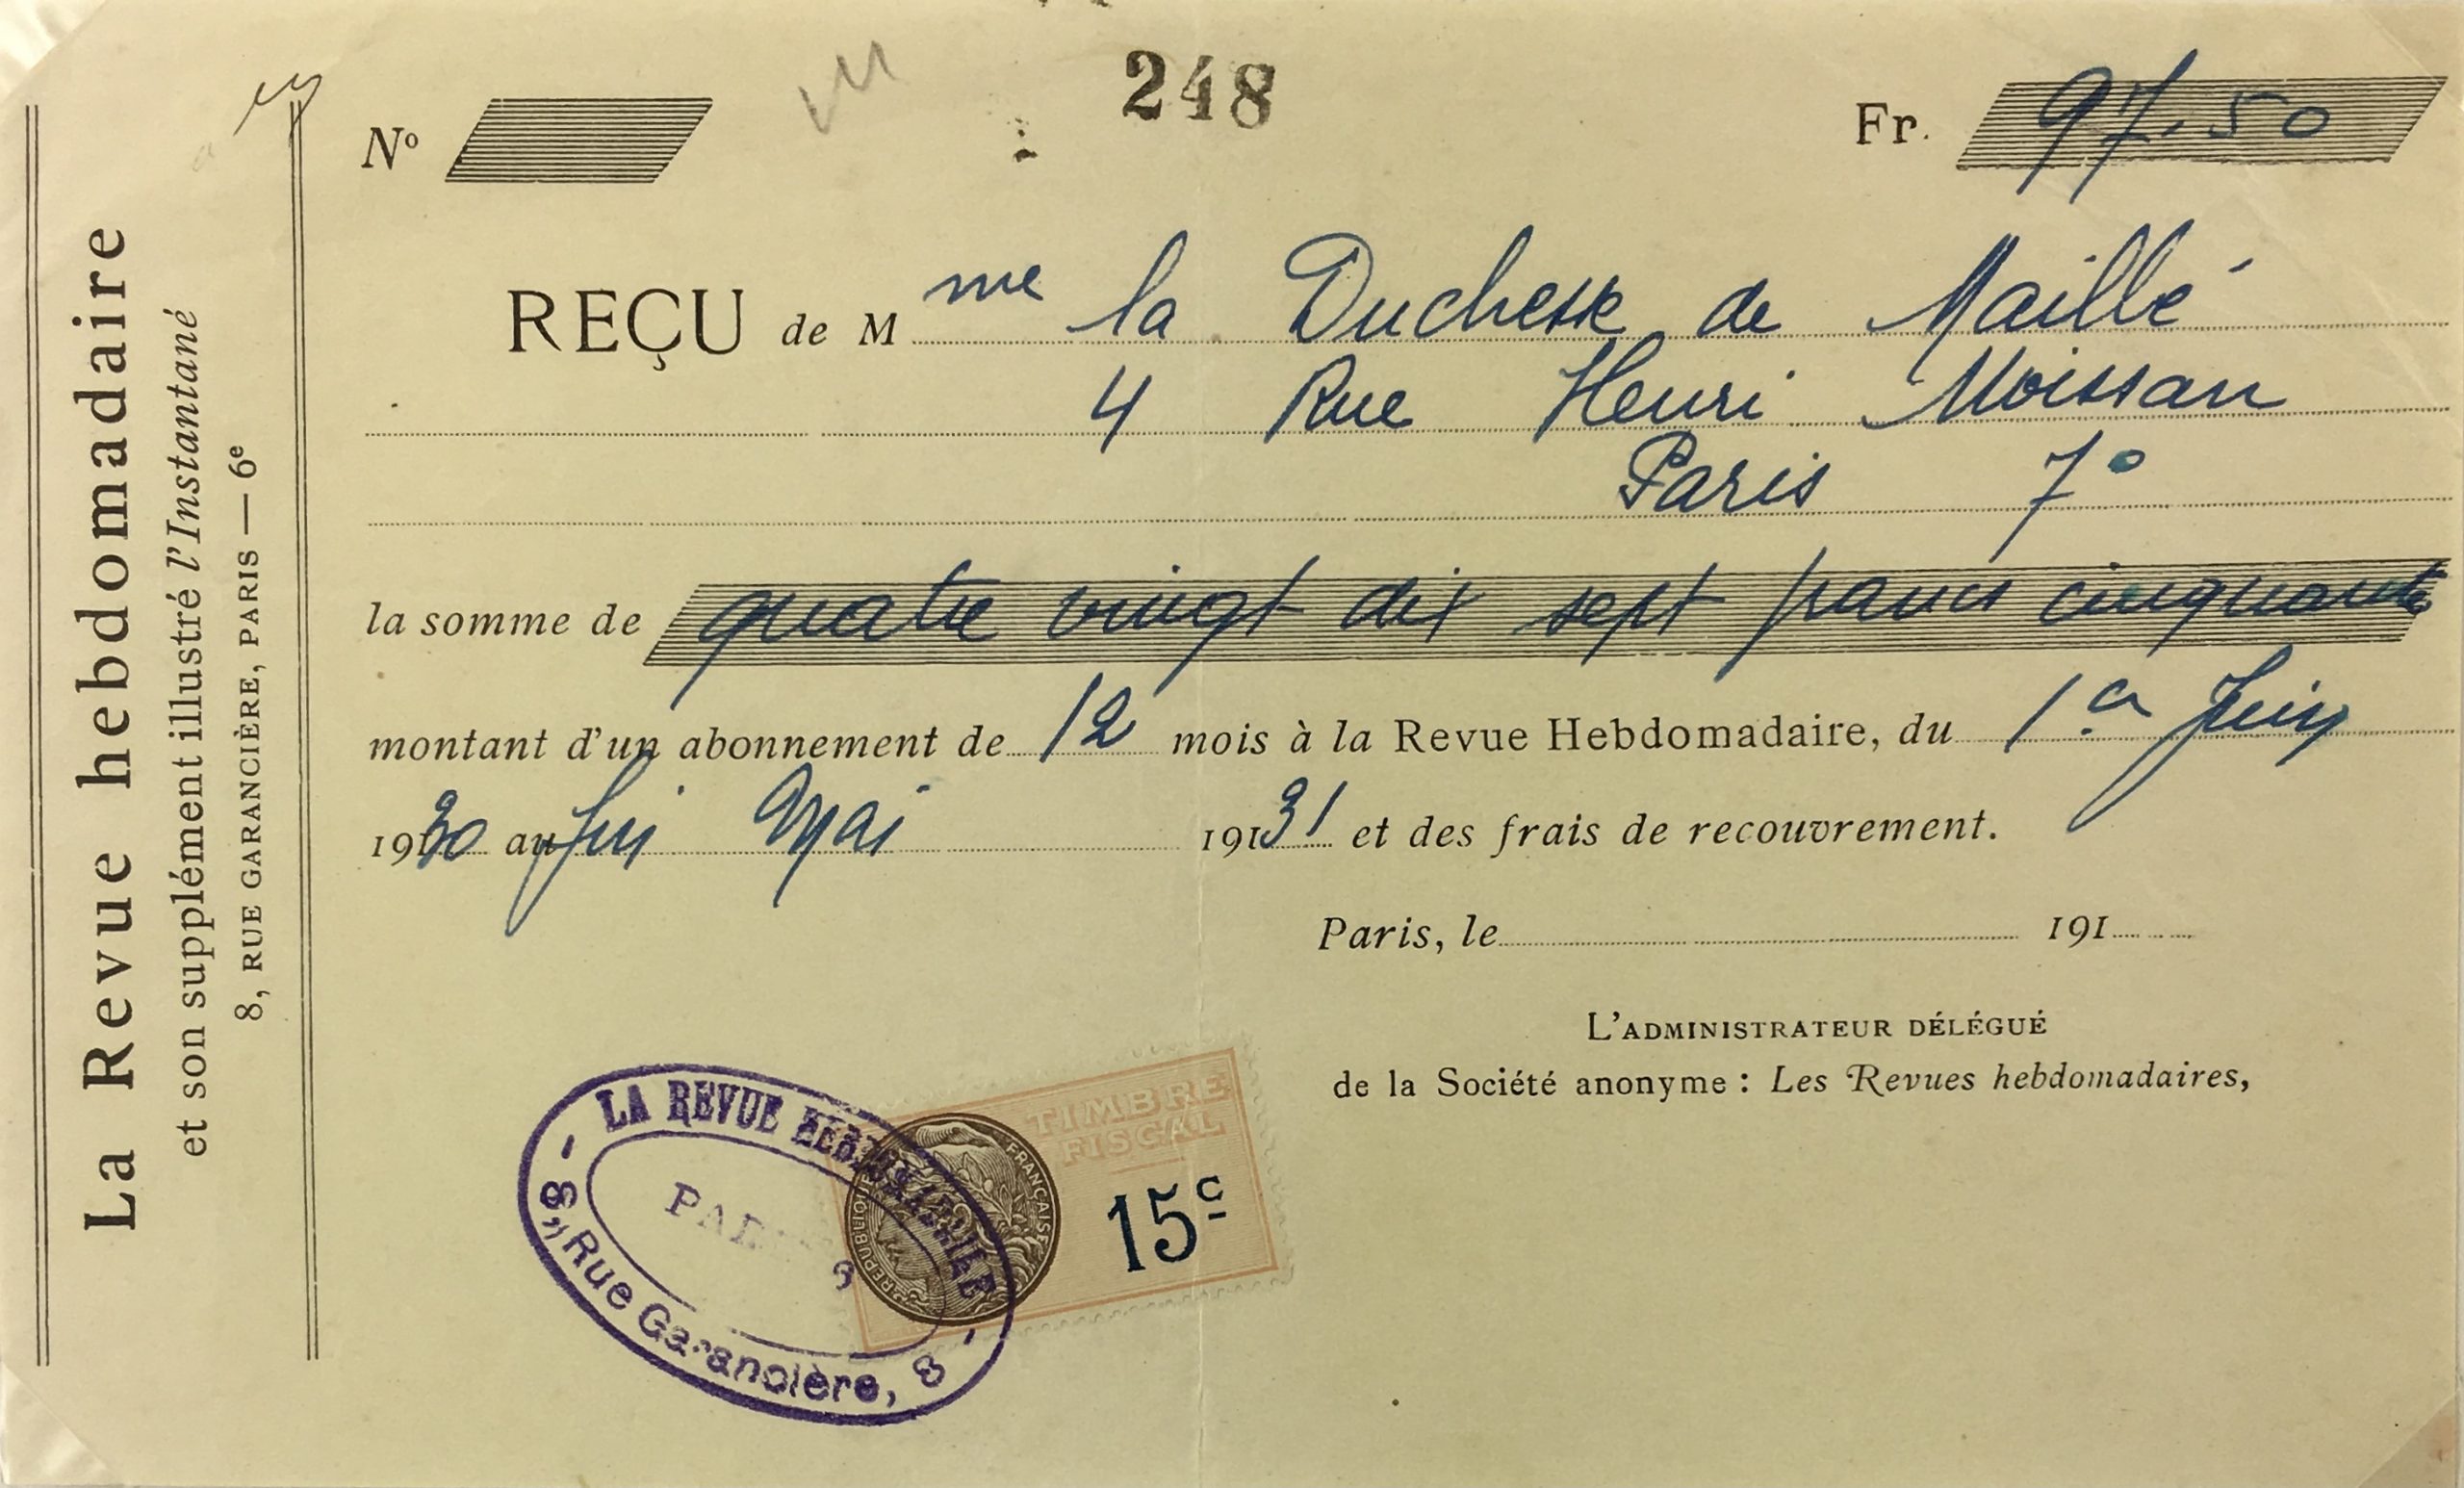 La Revue hebdomadaire
et son supplément illustré l'Instantané
8, RUE GARANCIÈRE, PARIS — 6e
248
No
Fr. 97.50
REÇU de Mme la Duchesse de Maillé
4 Rue Henri Moissan
Paris 7°
la somme de quatre vingt dix sept francs cinquante
montant d'un abonnement de 12 mois à la Revue Hebdomadaire, du 1er Juin
1930 au fin Mai 1931 et des frais de recouvrement.
Paris, le 191
L'ADMINISTRATEUR DÉLÉGUÉ
de la Société anonyme : Les Revues hebdomadaires,
LA REVUE HEBDOMADAIRE
PARIS
8, Rue Garancière, 8
TIMBRE
FISCAL
15c
RÉPUBLIQUE FRANÇAISE